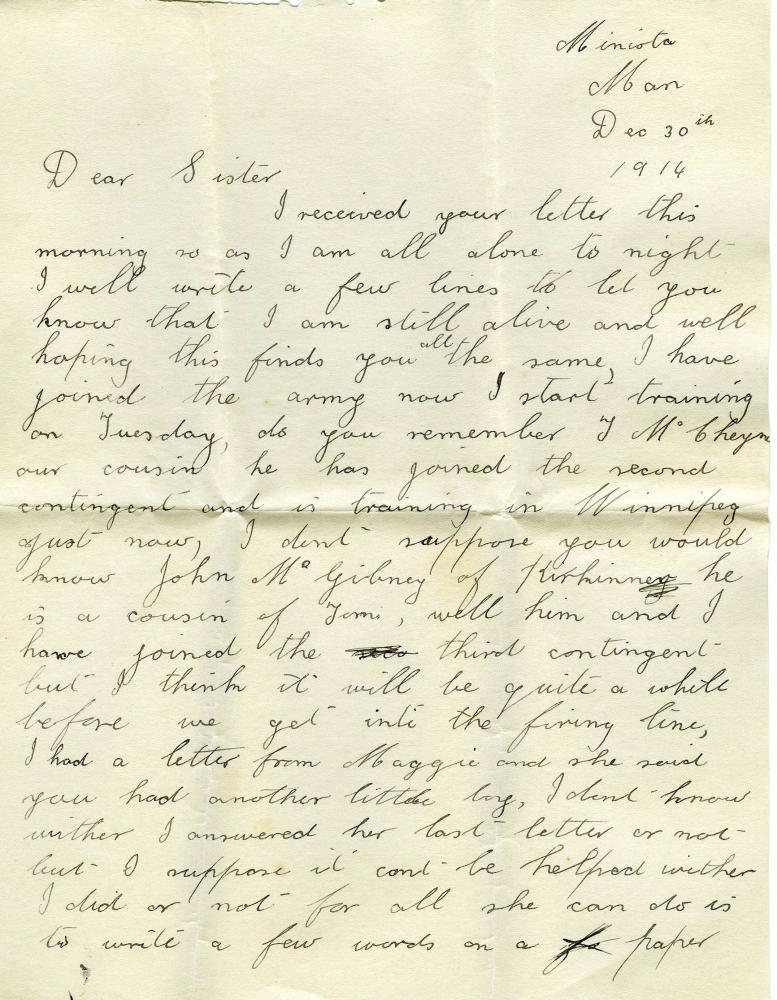 Miniota
Man
Dec 30th
1914
Dear Sister
I received your letter this
morning so as I am all alone to night
I will write a few lines to let you
know that I am still alive and well
hoping this finds you all the same, I have
joined the army now I start training
on Tuesday, do you remember J Mc Cheyne
our cousin he has joined the second
contingent and is training in Winnipeg
just now, I dont suppose you would
know John Mc Gibney of Kirkinner he
is a cousin of Toms, well him and I
have joined the third contingent
but I think it will be quite a while
before we get into the firing line,
I had a letter from Maggie and she said
you had another little boy, I dont know
wither I answered her last letter or not
but I suppose it cont be helped wither
I did or not for all she can do is
to write a few words on a paper